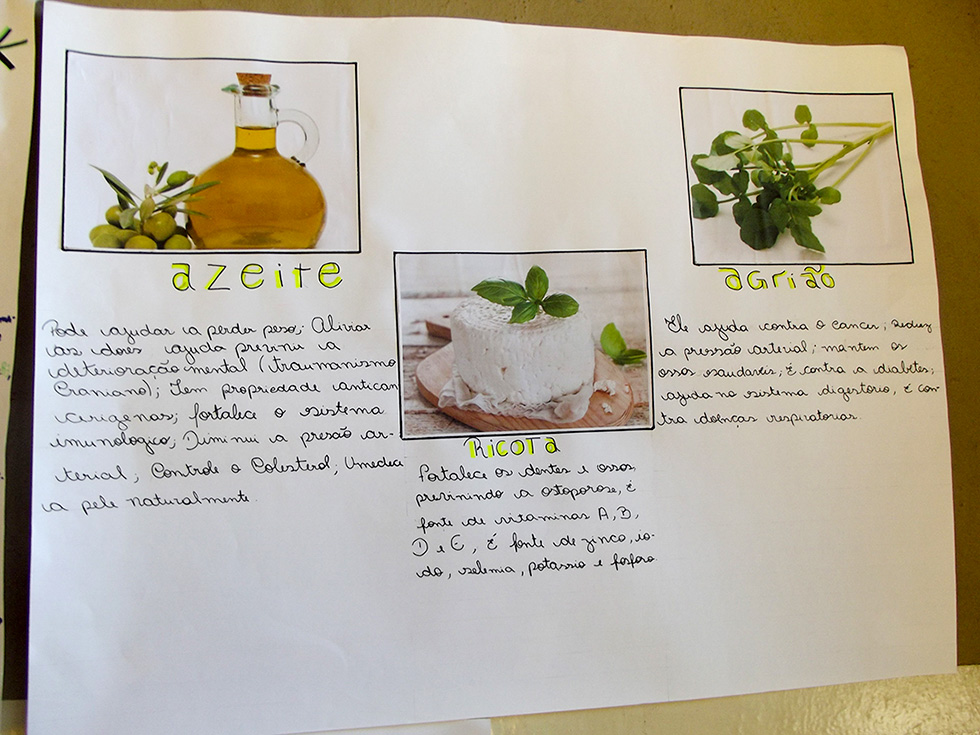 azeite
Pode ajudar a perder peso; Aliviar
as dores ajuda previnir a
deterioração mental (traumanismo
Craniano); Tem propriedade antican
cerigenas; fortalece o sistema
imunologico; Diminui a presão ar-
terial; Controle o Colesterol; Umedece
a pele naturalmente.
Ricota
Fortalece os dentes e ossos,
previnindo a ostoporose, é
fonte de vitaminas A, B,
D e E, É fonte de zinco, io-
do, selemia, potassio e fosforo
agrião
Ele ajuda contra o cancer; Reduz
a pressão arterial; mantem os
ossos saudaveis; É contra a diabetes;
ajuda no sistema digestório, É con
tra doenças respiratorias.